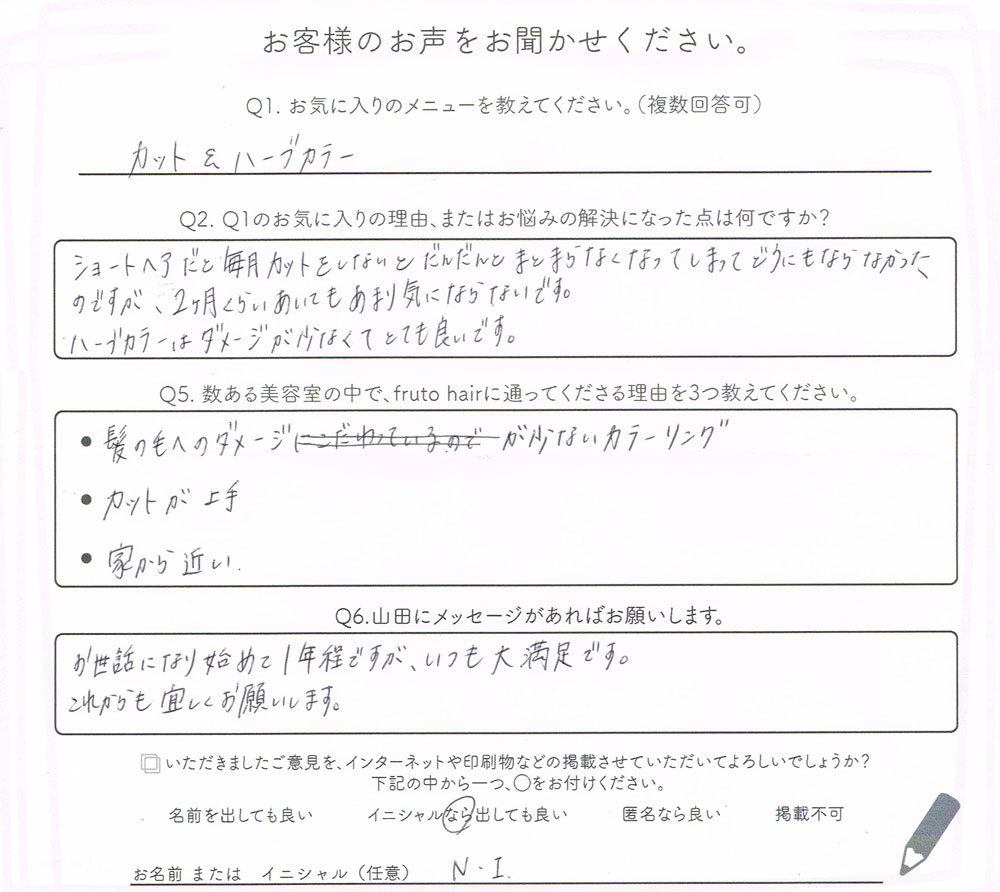 お客様のお声をお聞かせください。
Q1. お気に入りのメニューを教えてください。（複数回答可）
カット & ハーブカラー
Q2. Q1のお気に入りの理由、またはお悩みの解決になった点は何ですか？
ショートヘアだと毎月カットをしないとだんだんとまとまらなくなってしまってどうにもならなかった
のですが、2ヶ月くらいあいてもあまり気にならないです。
ハーブカラーはダメージが少なくてとても良いです。
Q5. 数ある美容室の中で、fruto hairに通ってくださる理由を3つ教えてください。
● 髪の毛へのダメージにこだわっているのでが少ないカラーリング
● カットが上手
● 家から近い.
Q6.山田にメッセージがあればお願いします。
お世話になり始めて1年程ですが、いつも大満足です。
これからも宜しくお願いします。
いただきましたご意見を、インターネットや印刷物などの掲載させていただいてよろしいでしょうか？
下記の中から一つ、〇をお付けください。
名前を出しても良い イニシャルなら出しても良い 匿名なら良い 掲載不可
お名前 または イニシャル（任意） N・I.